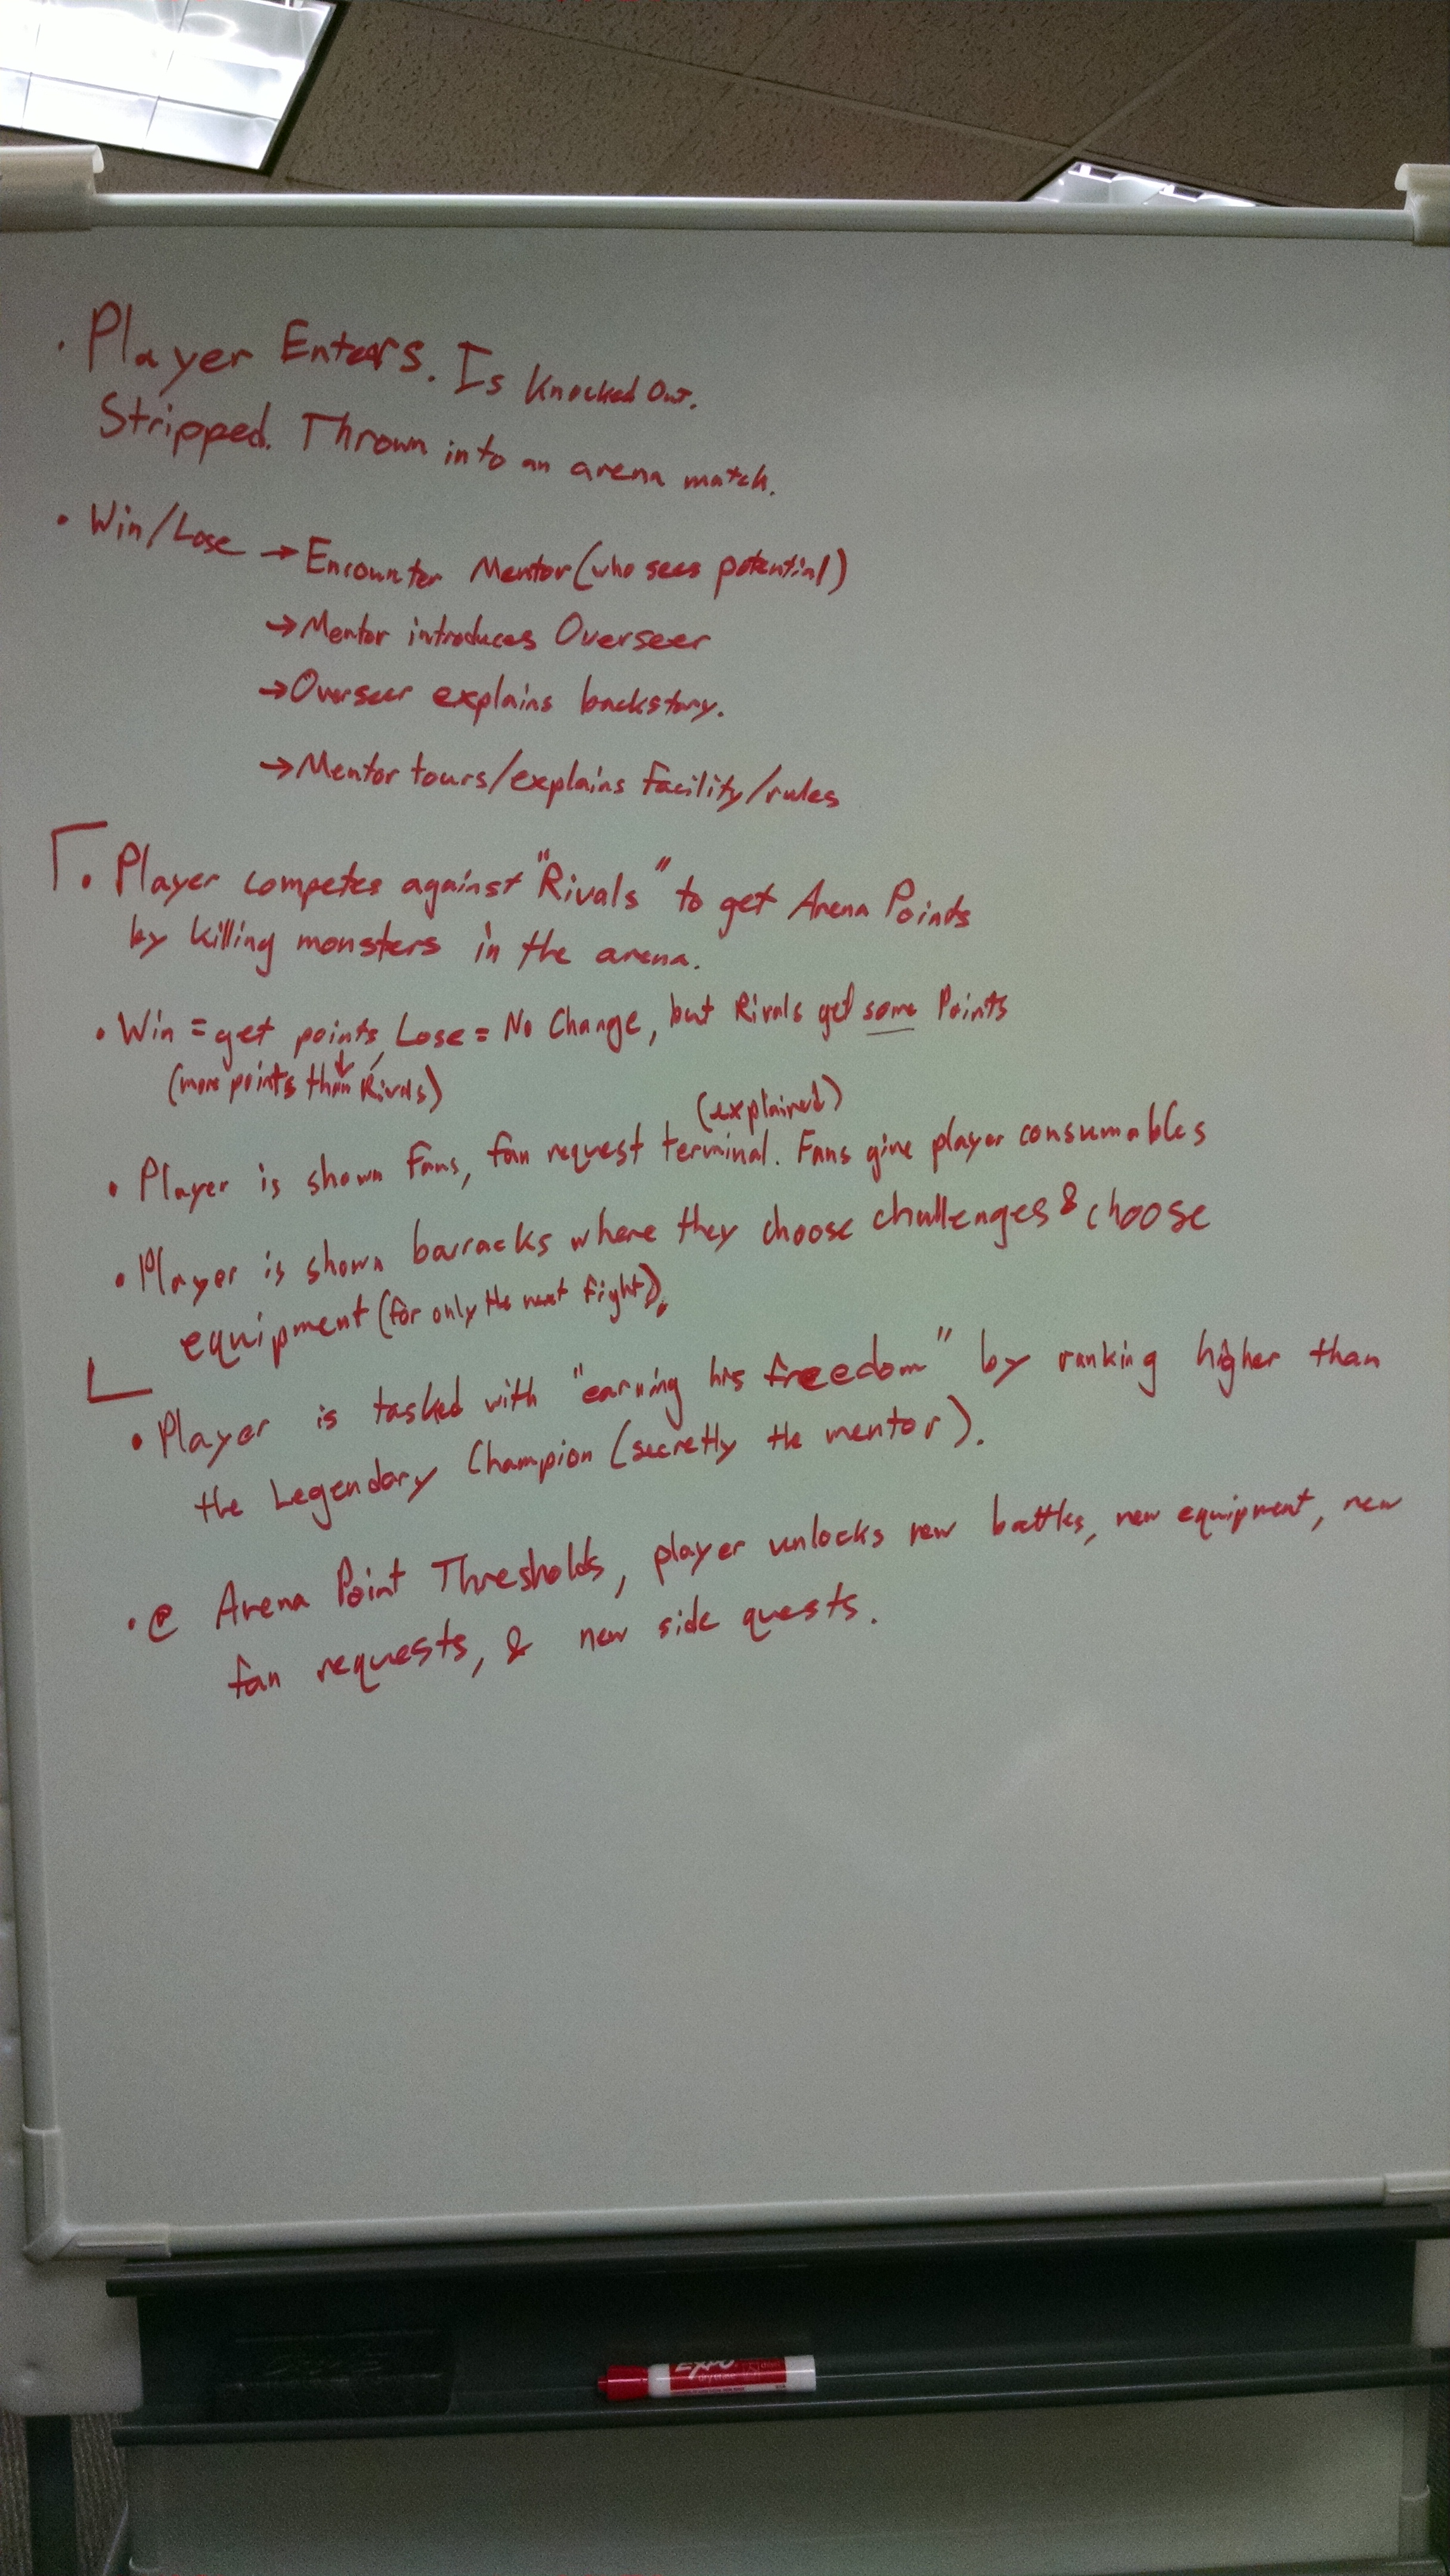 · Player Enters. Is Knocked Out.
Stripped. Thrown into an arena match.
· Win/Lose → Encounter Mentor (who sees potential)
→ Mentor introduces Overseer
→ Overseer explains backstory.
→ Mentor tours/explains facility/rules
· Player competes against "Rivals" to get Arena Points
by killing monsters in the arena.
· Win = get points, Lose = No Change, but Rivals get some Points
(more points than Rivals)
(explained)
· Player is shown Fans, fan request terminal. Fans give player consumables
· Player is shown barracks where they choose challenges & choose
equipment (for only the next fight).
· Player is tasked with "earning his freedom" by ranking higher than
the Legendary Champion (secretly the mentor).
· @ Arena Point Thresholds, player unlocks new battles, new equipment, new
fan requests, & new side quests.
EXPO